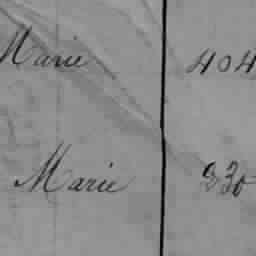 Marie 404
Marie 330